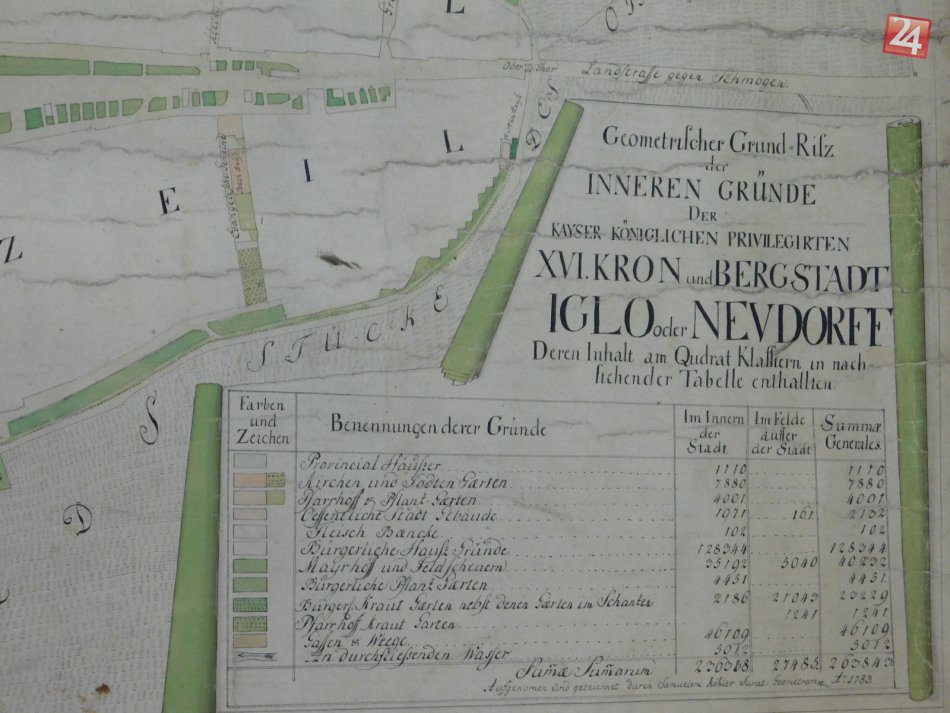 24
Ober Thor
Landstrasse gegen Schmögen.
Z E I L
DCS
S STÜCKE
D
Geometrischer Grund-Risz
der
INNEREN GRÜNDE
DER
KAYSER KÖNIGLICHEN PRIVILEGIRTEN
XVI. KRON und BERGSTADT
IGLO oder NEVDORFF
Deren Inhalt am Qudrat Klafftern in nach-
stehender Tabelle enthallten.
Farben und Zeichen Benennungen derer Gründe Im Innern der Stadt. Im Felde ausser der Stadt Summæ Generales.
Provincial Häusser 1110 1110
Kirchen und Todten Garten 7880 7880
Pfarrhoff & Pflantz Garten 4001 4001
Oeffentliche Stadt Gebäude 1971 161 2132
Fleisch Bäncke 102 102
Bürgerliche Hauss Gründe 128344 128344
Mayrhöff und Feldscheuern 35192 5040 40232
Bürgerliche Pflantz Garten 4451 4451
Bürgerl Kraut Garten nebst denen Garten im Schantzen 2186 21043 23229
Pfarrhoff Kraut Garten 1241 1241
Gassen & Weege 46109 46109
An durchfliessenden Wasser 5012 5012
Sum̃a Sum̃arum 236368 27485 263843
Aufgenomen und gezeichnet durch Samuelem Köhler Jurat: Geometram Aº 1783